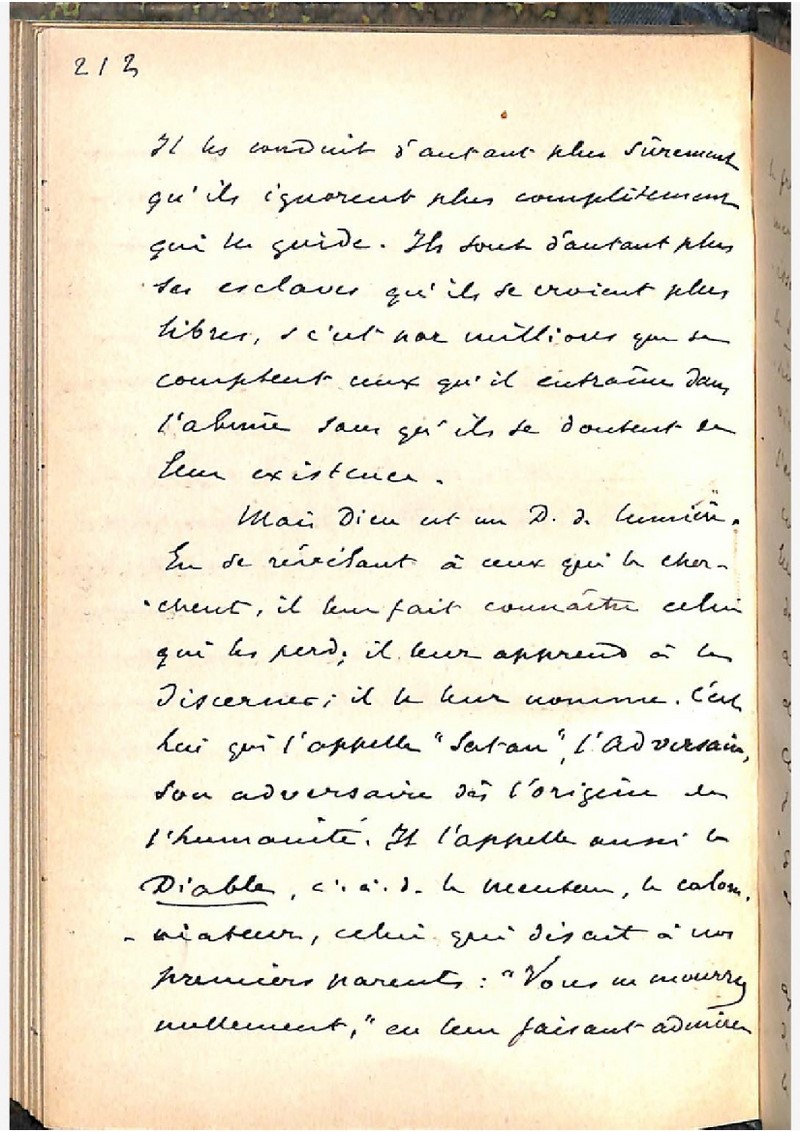 212
Il les conduit d'autant plus sûrement
qu'ils ignorent plus complètement
qui les guide. Ils sont d'autant plus
ses esclaves qu'ils se croient plus
libres, & c'est par millions que se
comptent ceux qu'il entraîne dans
l'abîme sans qu'ils se doutent de
leur existence.
Mais Dieu est un D. de lumière.
En se révélant à ceux qui le cher-
-chent, il leur fait connaître celui
qui les perd; il leur apprend à le
discerner; il le leur nomme. C'est
lui qui l'appelle "Satan", l'Adversaire,
son adversaire dès l'origine de
l'humanité. Il l'appelle aussi le
Diable, c.à.d. le menteur, le calom-
-niateur, celui qui disait à nos
premiers parents : "Vous ne mourrez
nullement," en leur faisant admirer